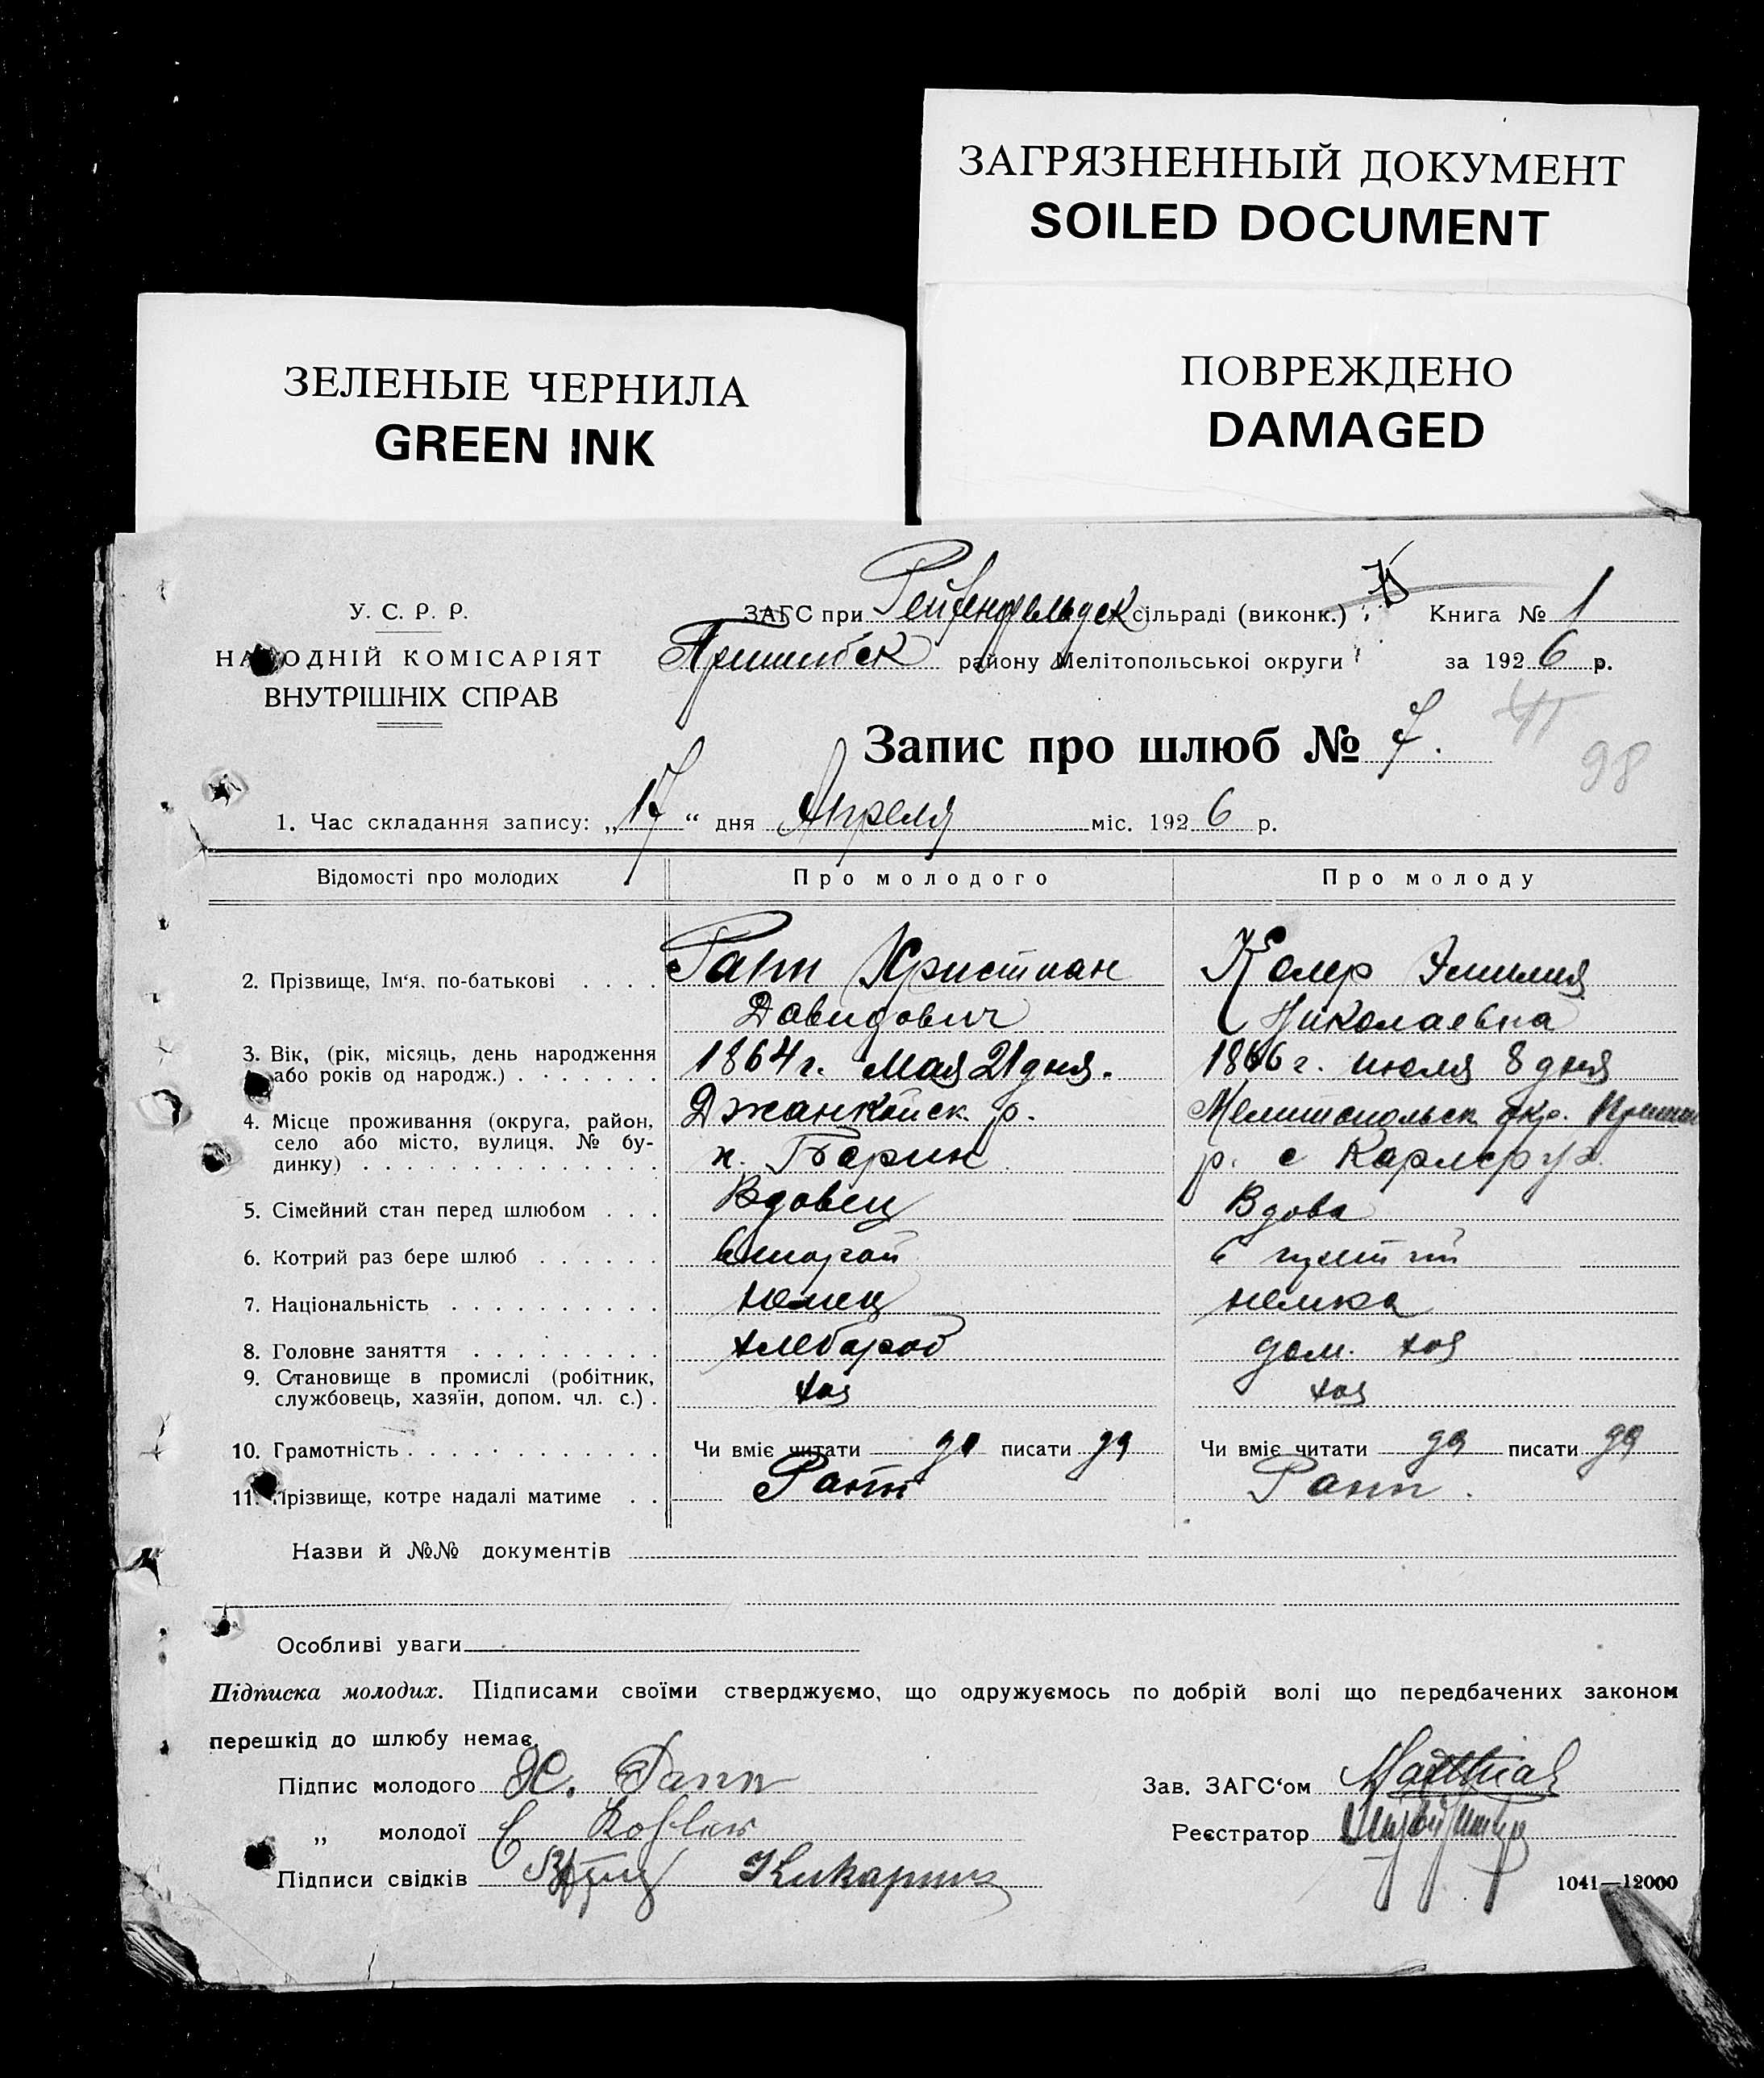 ЗАГРЯЗНЕННЫЙ ДОКУМЕНТ
SOILED DOCUMENT
ЗЕЛЕНЫЕ ЧЕРНИЛА
GREEN INK
ПОВРЕЖДЕНО
DAMAGED
У. С. Р. Р.
НАРОДНІЙ КОМІСАРІЯТ
ВНУТРІШНІХ СПРАВ
ЗАГС при Рейхенфельдск сільраді (виконк.) Книга № 1
Пришибск району Мелітопольської округи за 1926 р.
Запис про шлюб № 7.
98
1. Час складання запису: „17“ дня Апреля міс. 1926 р.
Відомості про молодих Про молодого Про молоду
2. Прізвище, Ім'я. по-батькові . . . . Рапп Христиан Келер Эмилия
Давидович Николаевна
3. Вік, (рік, місяць, день народження або років од народж.) . . . . . . . 1864 г. мая 21 дня. 1866 г. июля 8 дня
4. Місце проживання (округа, район, село або місто, вулиця, № будинку) . . . . . . . . . . . . . . Джанкойск р. Мелитопольск окр.
к. р. с Карлсруэ
5. Сімейний стан перед шлюбом . . . Вдовец Вдова
6. Котрий раз бере шлюб . . . . . . второй
7. Національність . . . . . . . . . . немец немка
8. Головне заняття . . . . . . . . . хлебороб дом. хоз
9. Становище в промислі (робітник, службовець, хазяїн, допом. чл. с.) . хоз хоз
10. Грамотність . . . . . . . . . . . . Чи вміє читати да писати да Чи вміє читати да писати да
11. Прізвище, котре надалі матиме . . Рапп Рапп.
Назви й №№ документів
Особливі уваги
Підписка молодих. Підписами своїми стверджуємо, що одружуємось по добрій волі що передбачених законом
перешкід до шлюбу немає.
Підпис молодого Х. Рапп Зав. ЗАГС'ом Matthias
„ молодої E Kohler Реєстратор
Підписи свідків
1041—12000